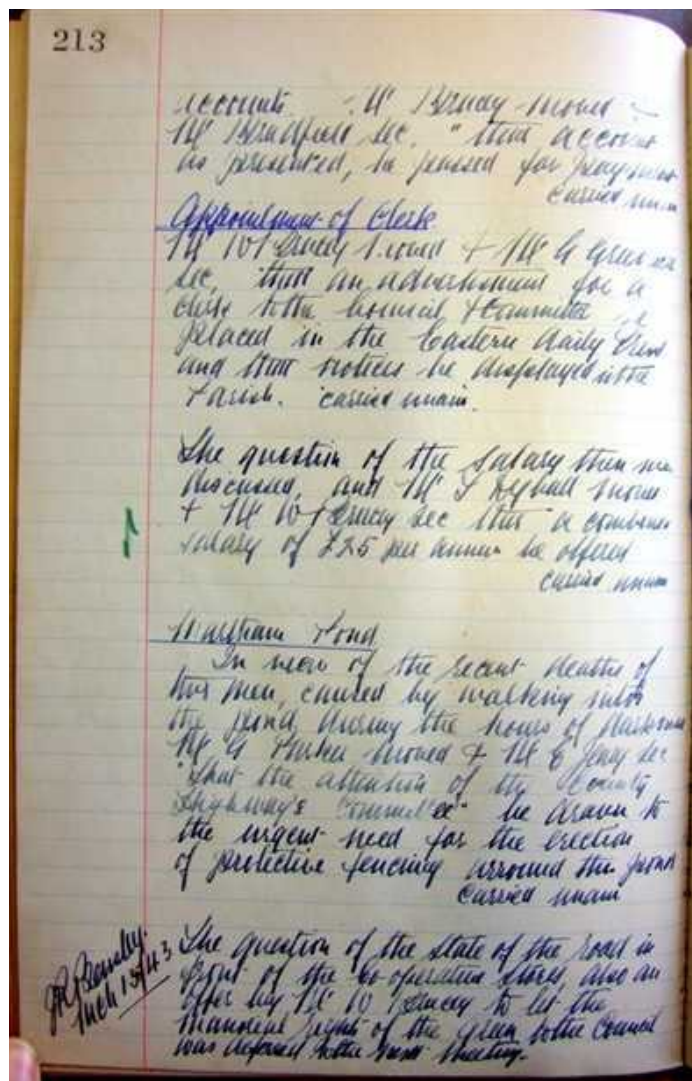 213
accounts Mr moved
Mr sec. "that accounts
as presented, be passed for payment
carried unam
Appointment of Clerk
Mr W moved & Mr G Green
sec, that an advertisement for a
clerk to the Council & Committee be
placed in the Eastern Daily Press
and that notices be displayed in the
Parish. carried unam.
The question of the salary then was
discussed, and Mr moved
& Mr W sec that a combined
salary of £25 per annum be offered
carried unam
Martham Pond
In view of the recent deaths of
two men, caused by walking into
the pond during the hours of darkness
Mr G moved & Mr E sec
"that the attention of the County
Highways Committee" be drawn to
the urgent need for the erection
of protective fencing arround the pond
carried unam
The question of the state of the road in
front of the Co-operative Stores, also an
offer by Mr W to let the
Manorial rights of the Green to the Council
was deferred to the next meeting.
Mch 15/43